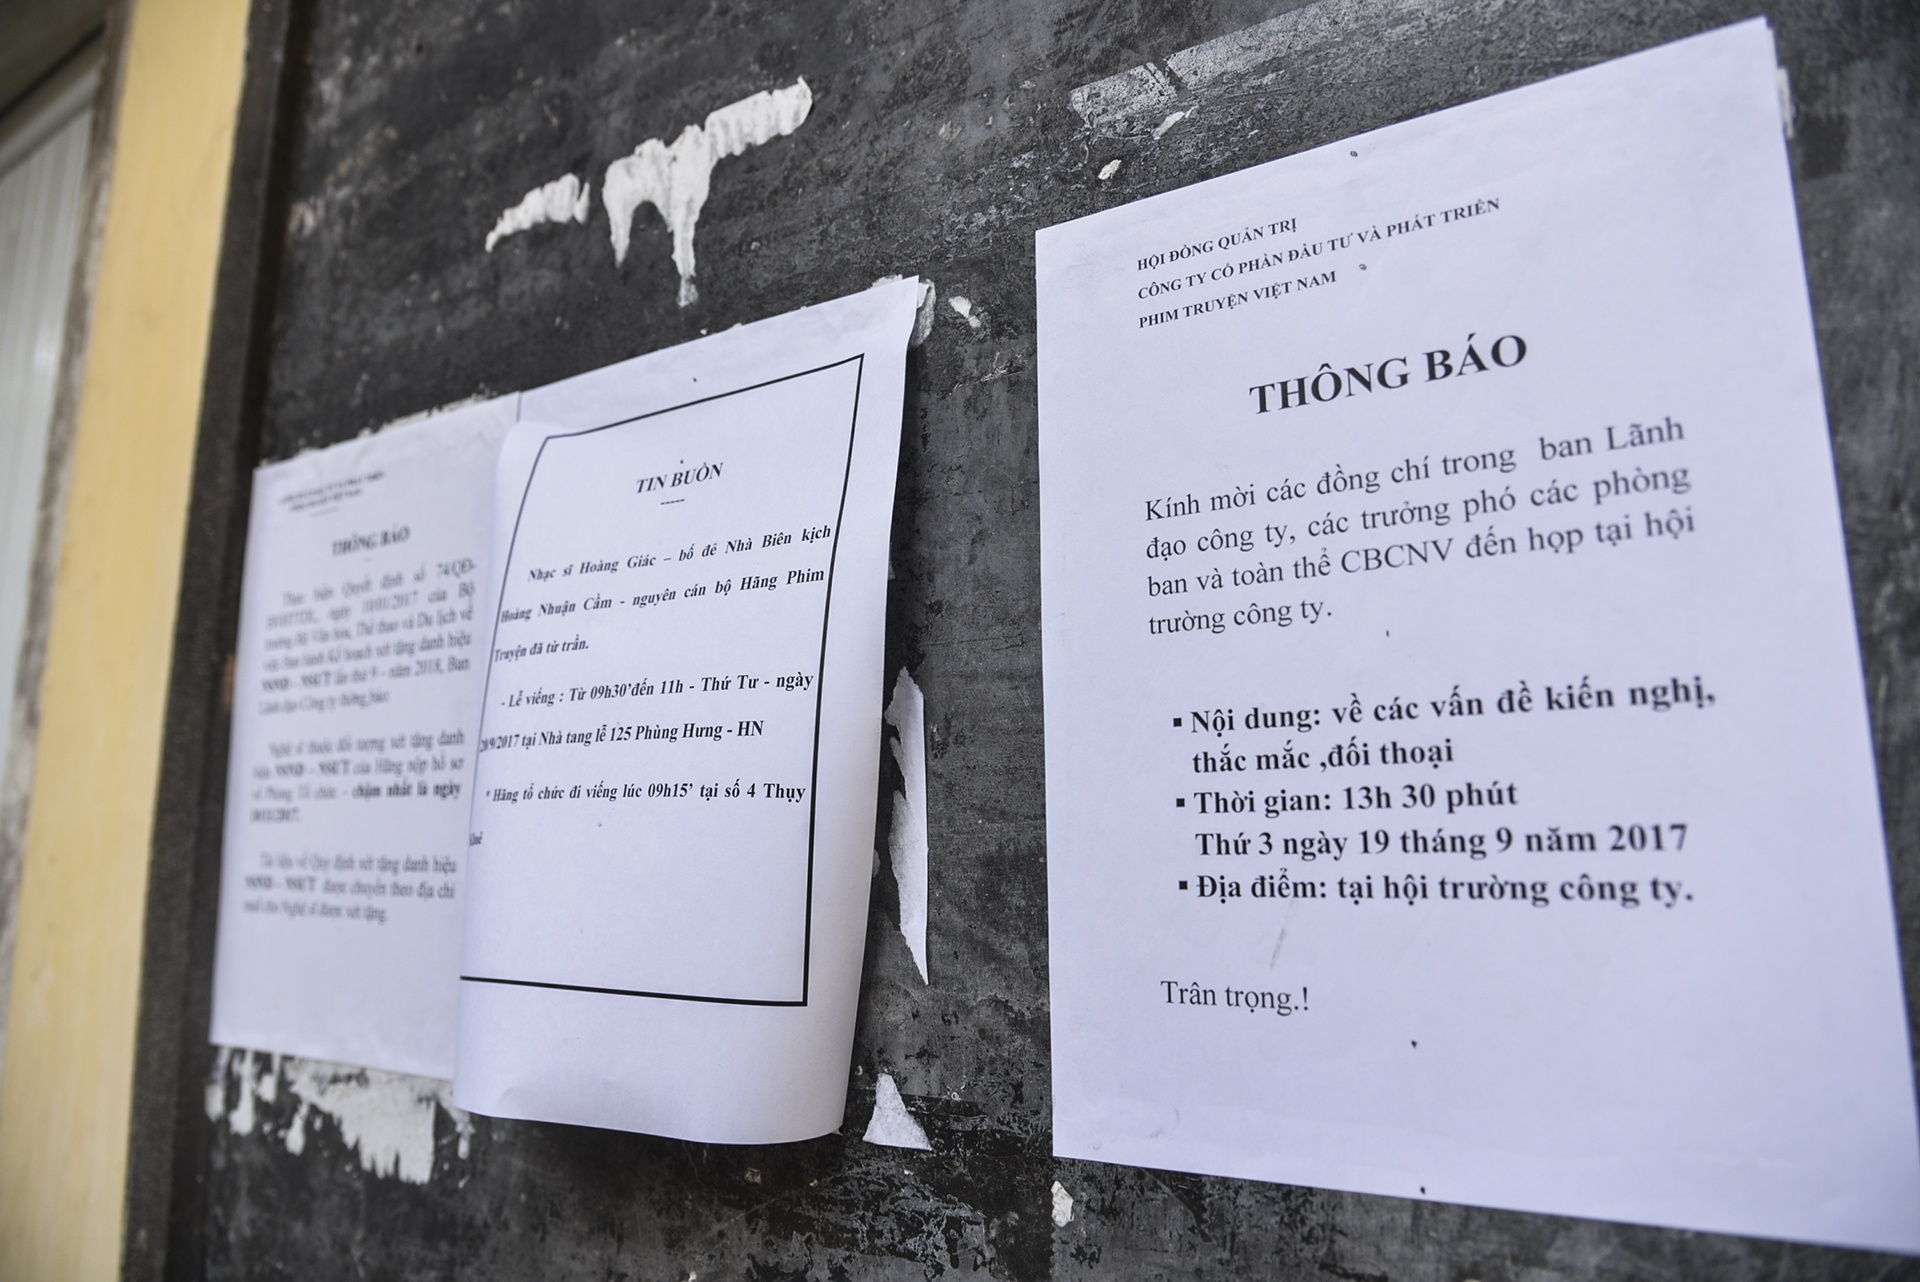 THÔNG BÁO
Thực hiện Quyết định số 74/QĐ-
BVHTTDL, ngày 10/01/2017 của Bộ
trưởng Bộ Văn hóa, Thể thao và Du lịch về
việc Ban hành Kế hoạch xét tặng danh hiệu
NSND - NSƯT lần thứ 9 - năm 2018, Ban
Lãnh đạo Công ty thông báo:
Nghệ sĩ thuộc đối tượng xét tặng danh
hiệu NSND - NSƯT của Hãng nộp hồ sơ
về Phòng Tổ chức - chậm nhất là ngày
Tài liệu về Quy định xét tặng danh hiệu
NSND - NSƯT được chuyển theo địa chỉ
mail cho Nghệ sĩ được xét tặng.
TIN BUỒN
-----
Nhạc sĩ Hoàng Giác – bố đẻ Nhà Biên kịch
Hoàng Nhuận Cầm - nguyên cán bộ Hãng Phim
Truyện đã từ trần.
- Lễ viếng : Từ 09h30’đến 11h - Thứ Tư - ngày
20/9/2017 tại Nhà tang lễ 125 Phùng Hưng - HN
* Hãng tổ chức đi viếng lúc 09h15’ tại số 4 Thụy
Khuê
HỘI ĐỒNG QUẢN TRỊ
CÔNG TY CỔ PHẦN ĐẦU TƯ VÀ PHÁT TRIỂN
PHIM TRUYỆN VIỆT NAM
THÔNG BÁO
Kính mời các đồng chí trong ban Lãnh
đạo công ty, các trưởng phó các phòng
ban và toàn thể CBCNV đến họp tại hội
trường công ty.
▪ Nội dung: về các vấn đề kiến nghị,
thắc mắc ,đối thoại
▪ Thời gian: 13h 30 phút
Thứ 3 ngày 19 tháng 9 năm 2017
▪ Địa điểm: tại hội trường công ty.
Trân trọng.!